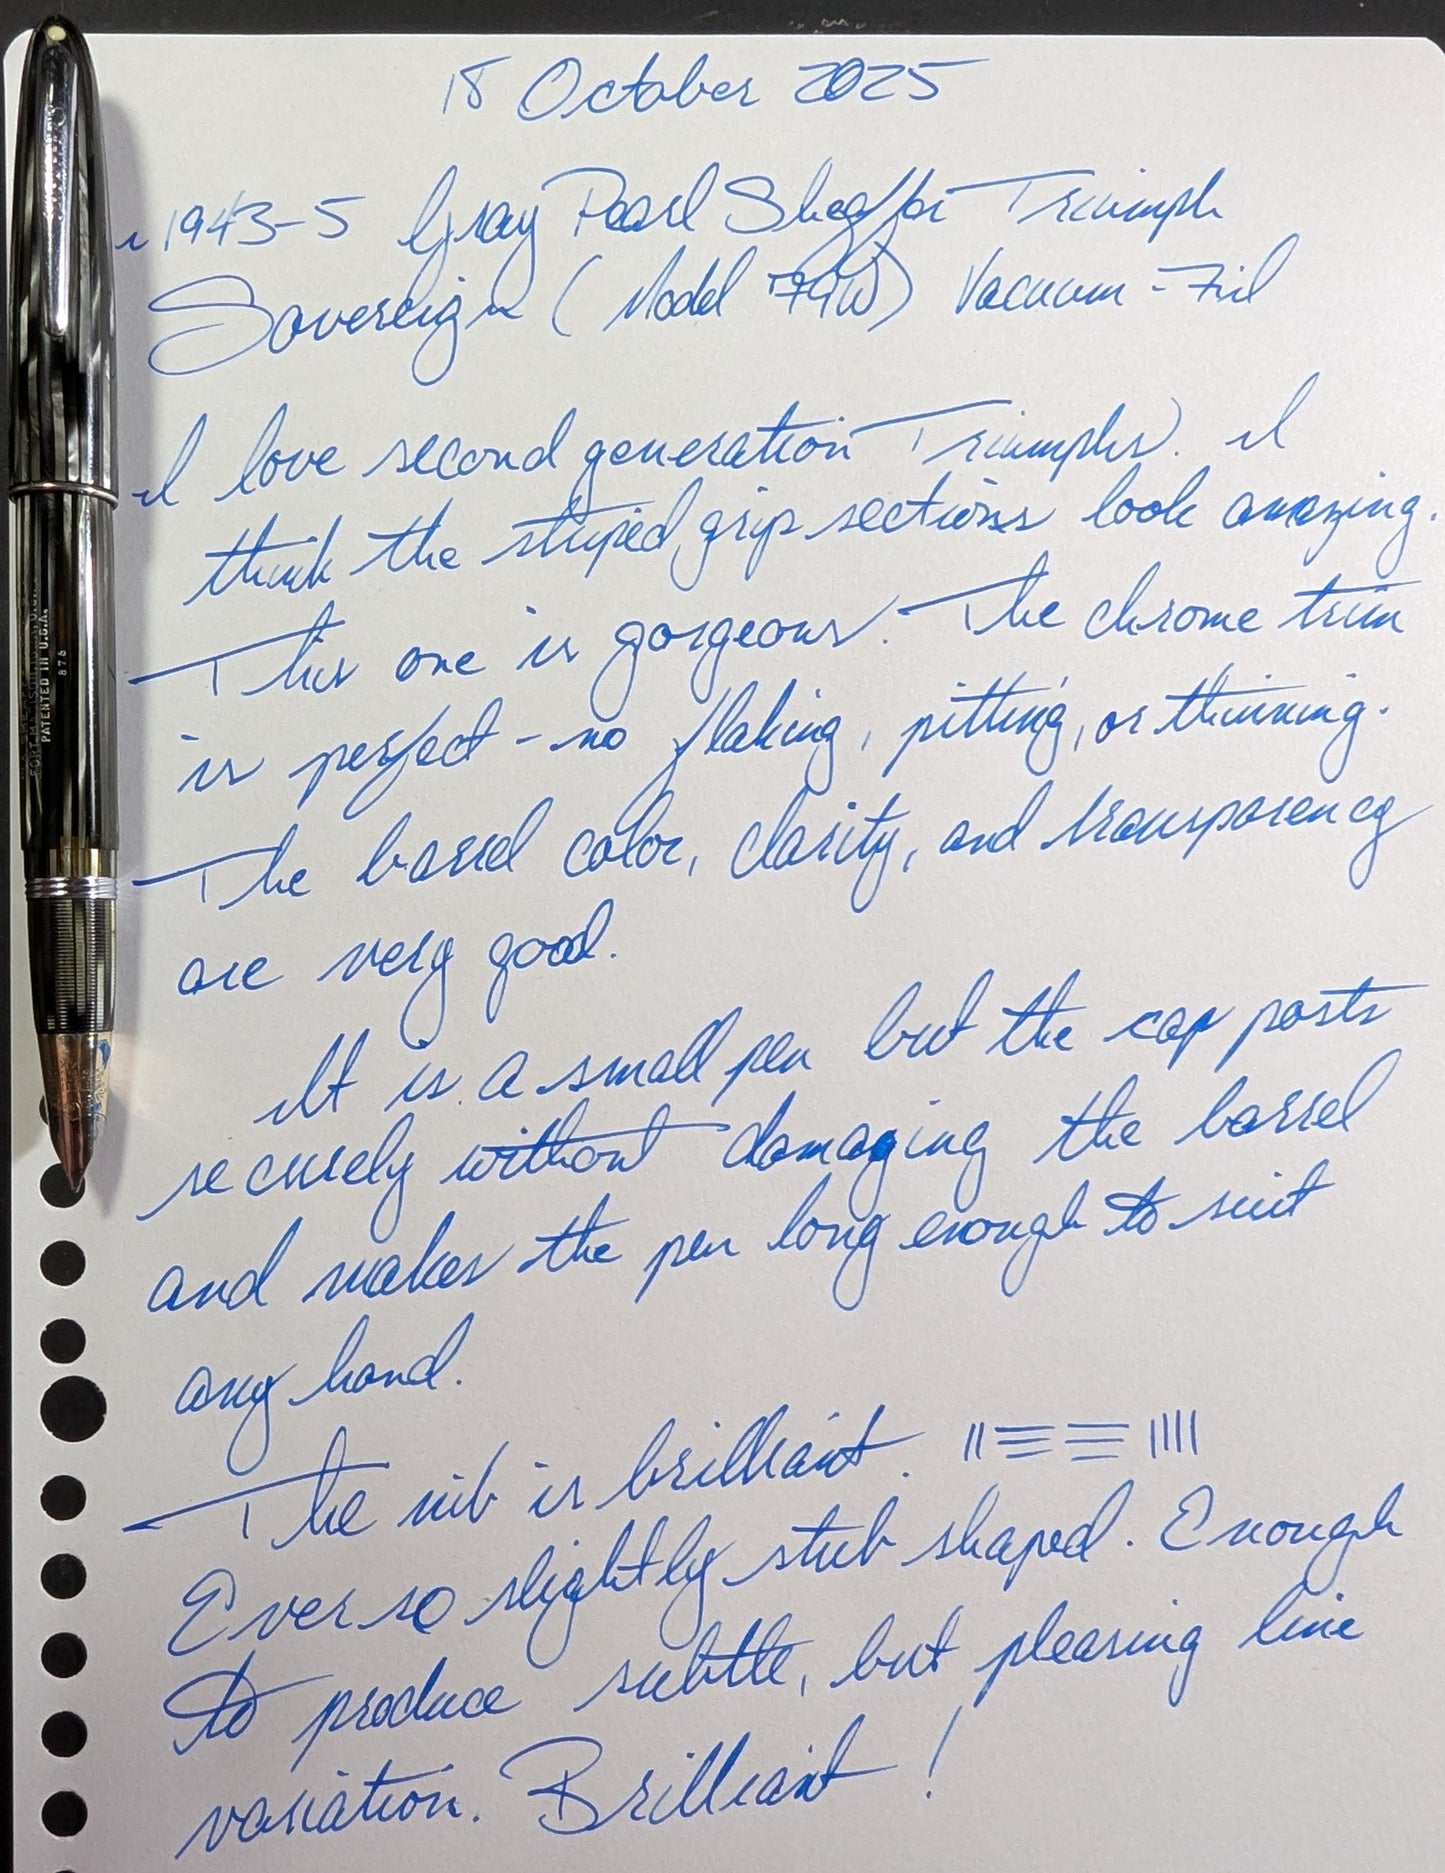 18 October 2025
1943-5 Gray Pearl Sheaffer Triumph
Sovereign (Model 79W) Vacuum-Fil
I love second generation Triumphs. I
think the striped grip sections look amazing.
This one is gorgeous. The chrome trim
is perfect - no flaking, pitting, or thinning.
The barrel color, clarity, and transparency
are very good.
It is a small pen but the cap posts
securely without damaging the barrel
and makes the pen long enough to suit
any hand.
The nib is brilliant.
Ever so slightly stub shaped. Enough
to produce subtle, but pleasing line
variation. Brilliant!
SHEAFFER'S
PATENTED IN U.S.A.
875